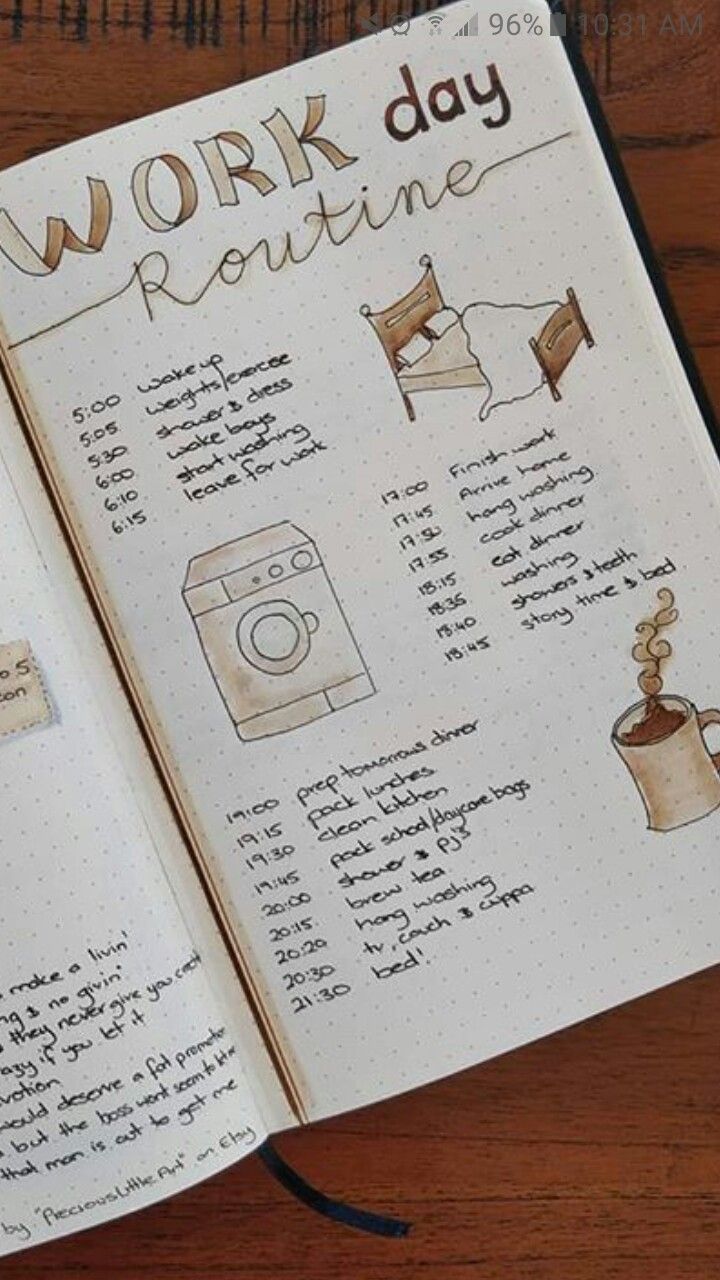 96% 10:31 AM
WORK day
Routine
5:00 wake up
5:05 weights/exercise
5:30 shower & dress
6:00 wake boys
6:10 start washing
6:15 leave for work
17:00 Finish work
17:45 Arrive home
17:50 hang washing
17:55 cook dinner
18:15 eat dinner
18:35 washing
18:40 showers & teeth
18:45 story time & bed
19:00 prep tomorrows dinner
19:15 pack lunches
19:30 clean kitchen
19:45 pack school/daycare bags
20:00 shower & PJ's
20:15 brew tea
20:20 hang washing
20:30 tv, couch & cuppa
21:30 bed!
o 5
con
make a livin'
ng & no givin'
they never give you credit
azy if you let it
votion
would deserve a fat promotion
but the boss wont seem to let me
that man is out to get me
by "PreciousLittleArt" on Etsy